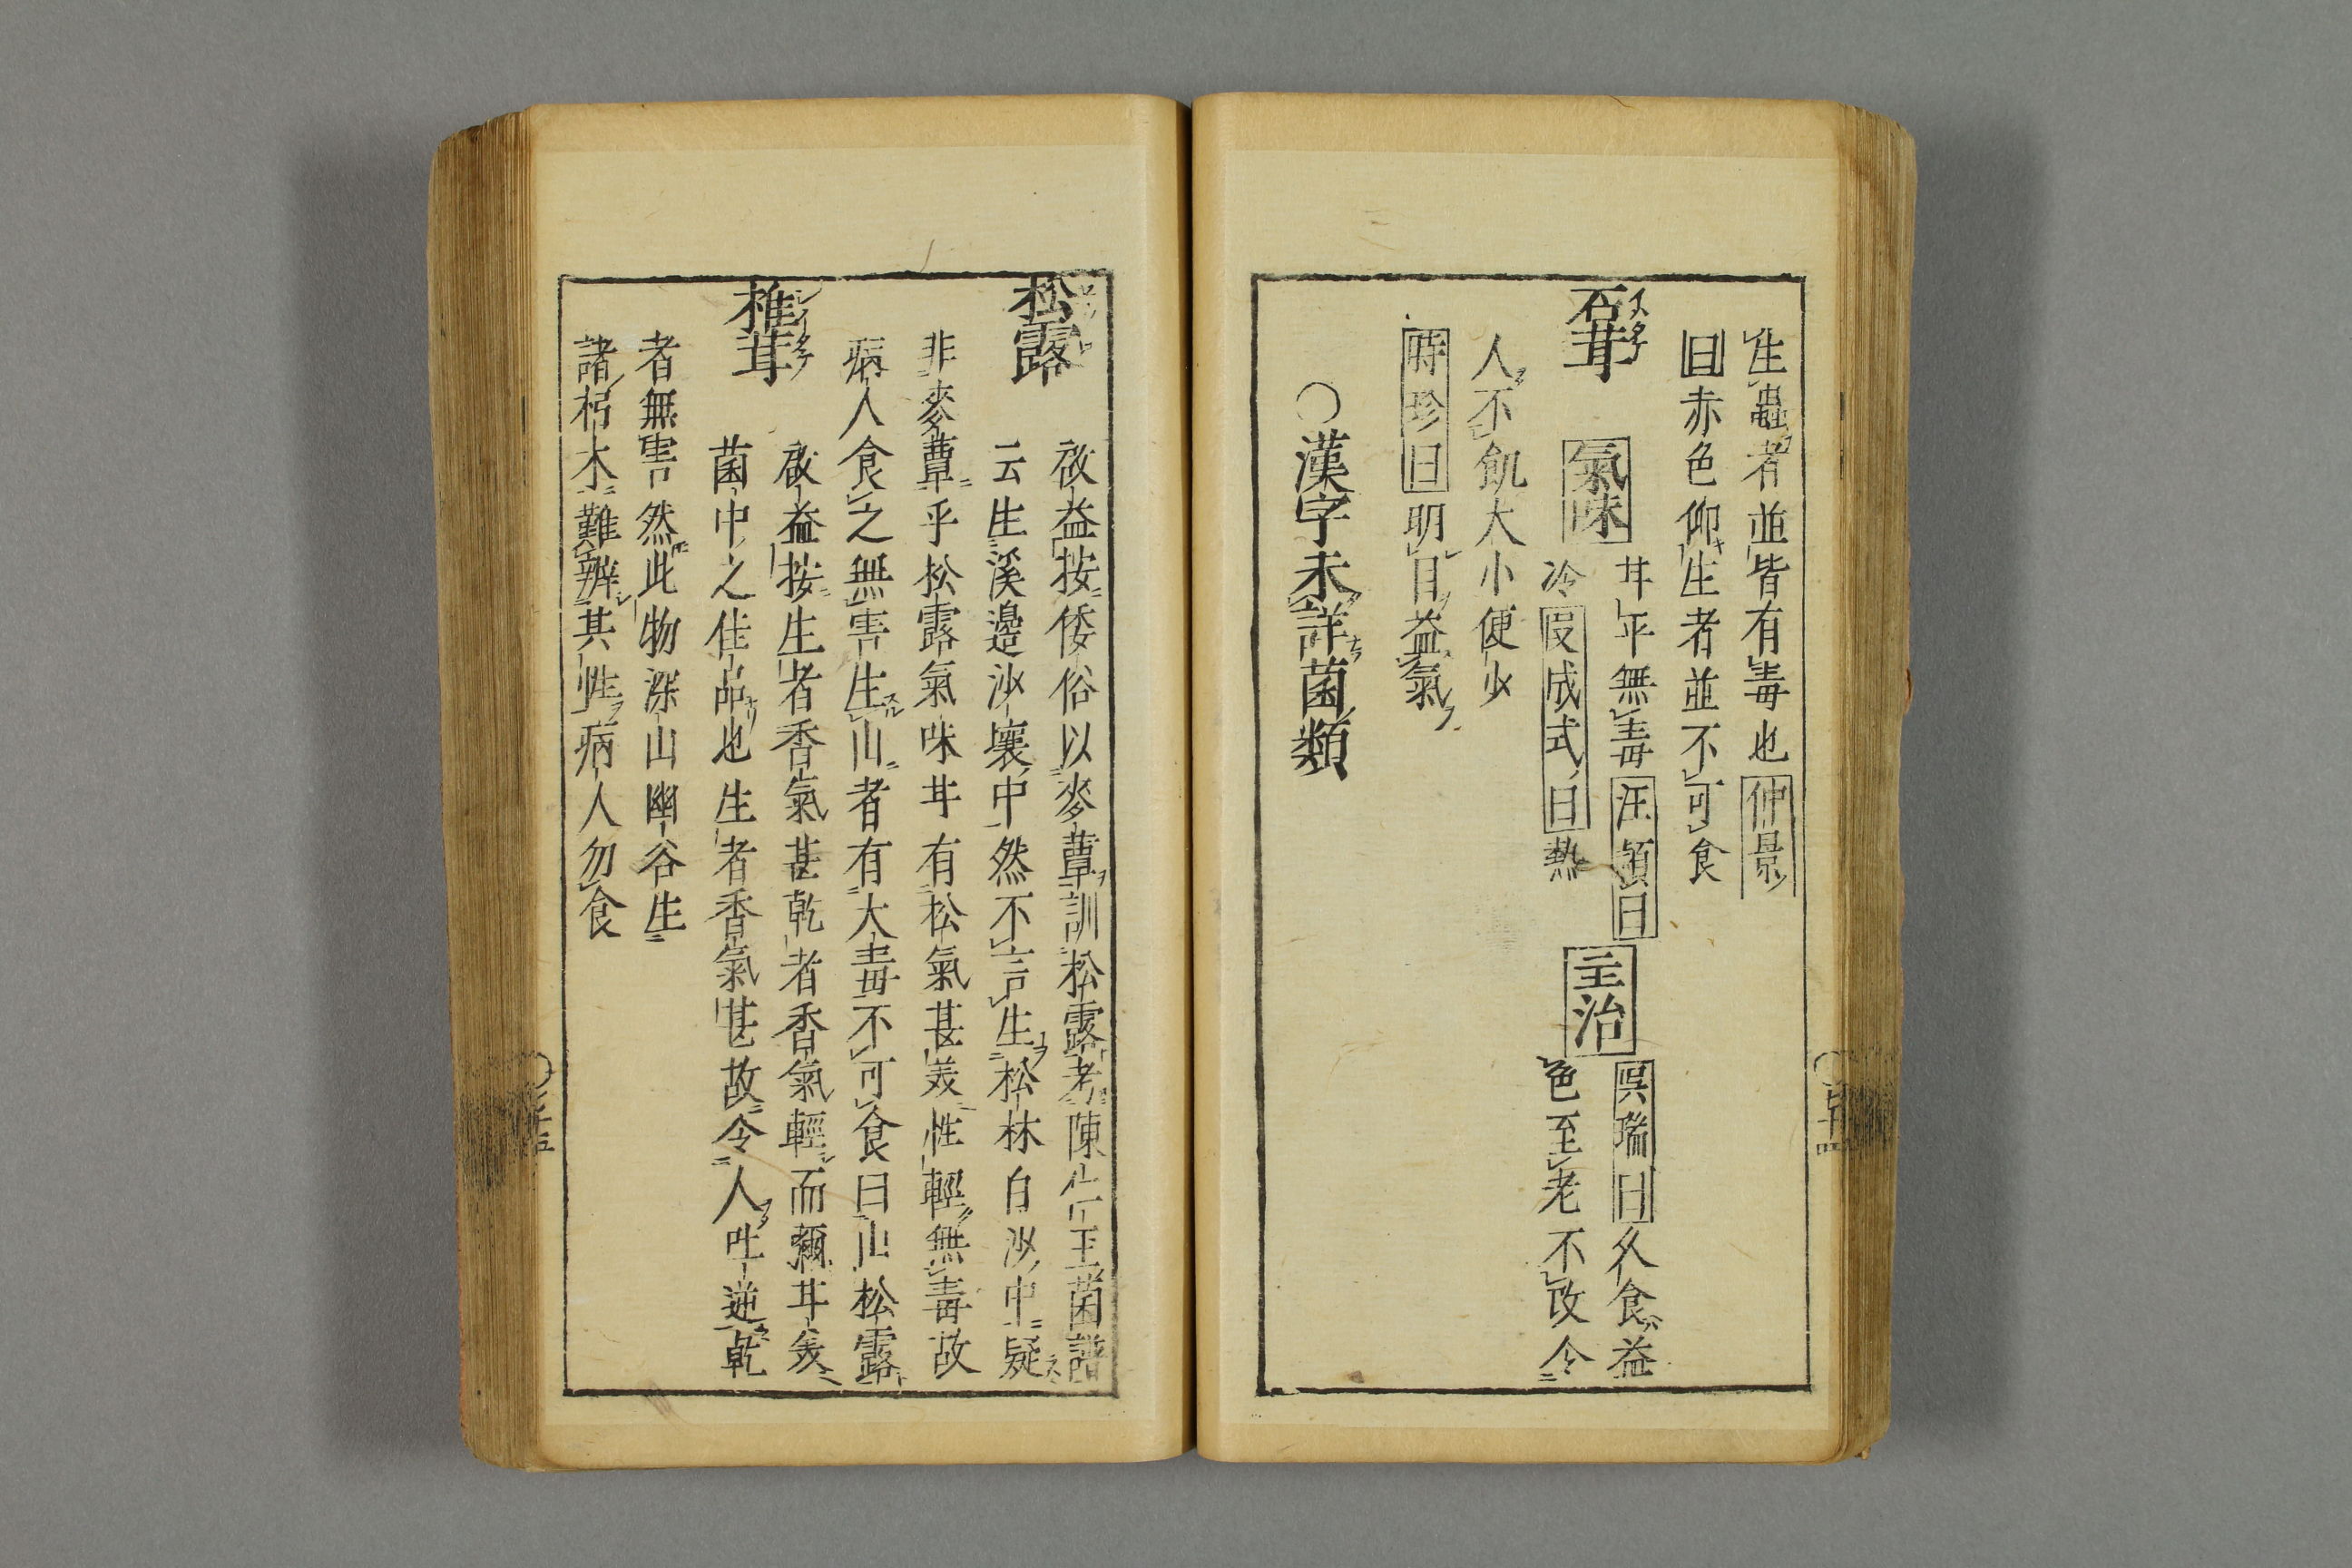 生蟲者並皆有毒也仲景
曰赤色仰生者並不可食
石茸 氣味 甘平無毒汪頴曰
冷段成式曰熱
主治 呉瑞曰久食益
色至老不改令
人不飢大小便少
時珍曰明目益氣
○漢字未詳菌類
松露 啟益按倭俗以麥蕈訓松露考陳仁玉菌譜
云生溪邊沙壤中然不言生松林白沙中疑
非麥蕈乎松露氣味甘有松氣甚美性輕無毒故
病人食之無害生山者有大毒不可食曰山松露
椎茸 啟益按生者香氣甚乾者香氣輕而彌甘美
菌中之佳品也生者香氣甚故令人吐逆乾
者無害然此物深山幽谷生
諸朽木難辨其性病人勿食